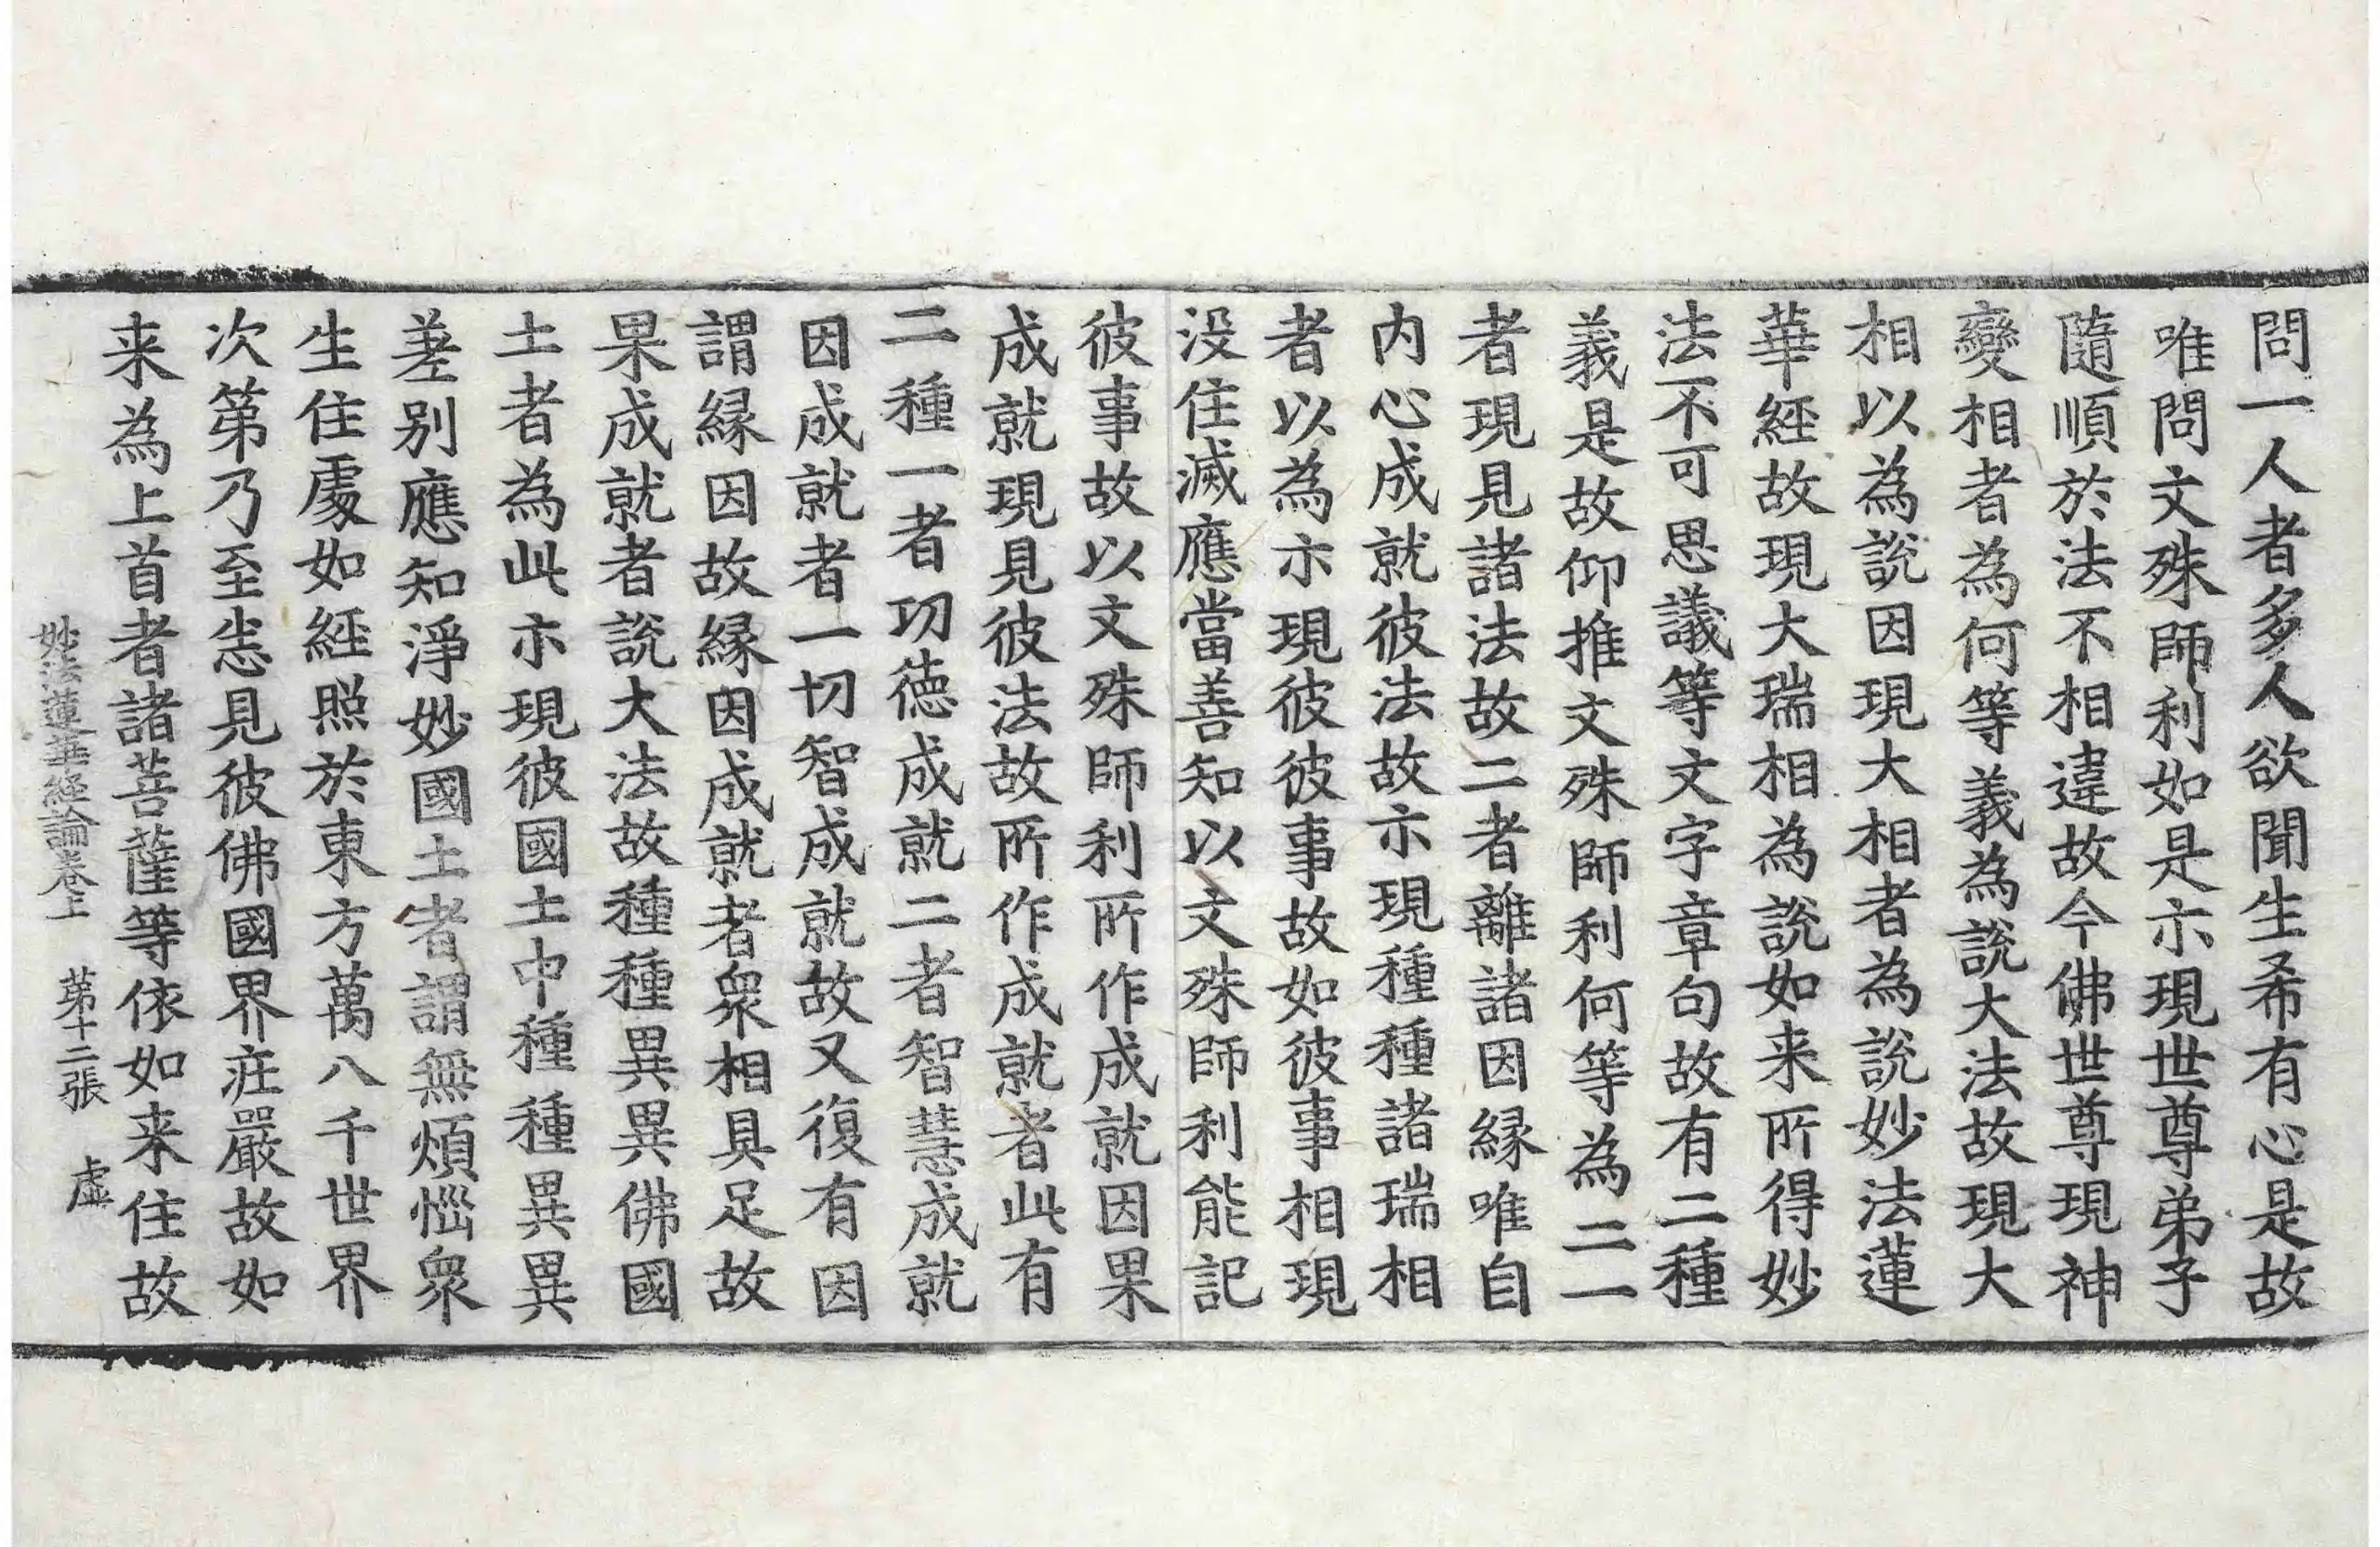 問一人者多人欲聞生希有心是故
唯問文殊師利如是示現世尊弟子
隨順於法不相違故今佛世尊現神
變相者為何等義為說大法故現大
相以為說因現大相者為說妙法蓮
華經故現大瑞相為說如来所得妙
法不可思議等文字章句故有二種
義是故仰推文殊師利何等為二一
者現見諸法故二者離諸因縁唯自
内心成就彼法故示現種種諸瑞相
者以為示現彼彼事故如彼事相現
没住滅應當善知以文殊師利能記
彼事故以文殊師利所作成就因果
成就現見彼法故所作成就者此有
二種一者功徳成就二者智慧成就
因成就者一切智成就故又復有因
謂縁因故縁因成就者衆相具足故
果成就者說大法故種種異異佛國
土者為此示現彼國土中種種異異
差别應知淨妙國土者謂無煩惱衆
生住處如經照於東方萬八千世界
次第乃至悉見彼佛國界庄嚴故如
来為上首者諸菩薩等依如来住故
妙法蓮華經論卷上　第十二張　虚